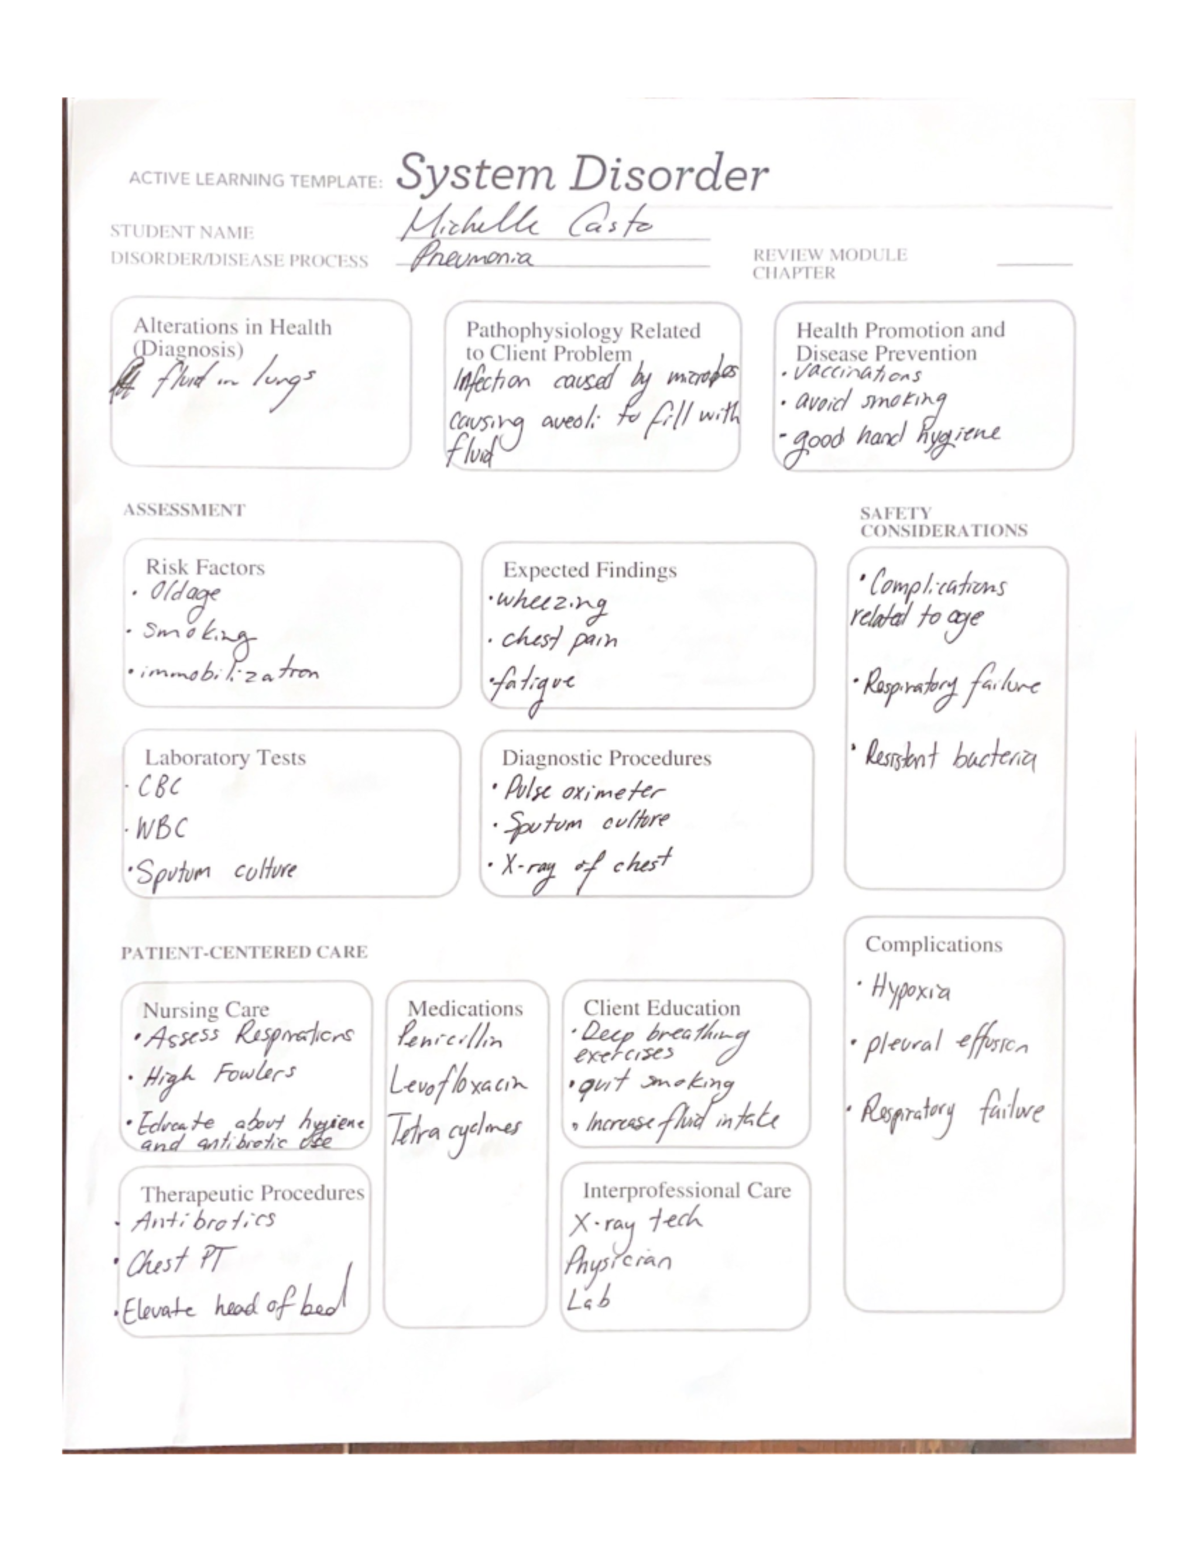 ACTIVE LEARNING TEMPLATE: System Disorder
STUDENT NAME Michelle Casto
DISORDER/DISEASE PROCESS Pneumonia
REVIEW MODULE
CHAPTER
Alterations in Health
(Diagnosis)
fluid in lungs
Pathophysiology Related
to Client Problem
Infection caused by microbes
causing aveoli to fill with
fluid
Health Promotion and
Disease Prevention
• vaccinations
• avoid smoking
- good hand hygiene
ASSESSMENT
SAFETY
CONSIDERATIONS
Risk Factors
• Old age
• Smoking
• immobilization
Expected Findings
• wheezing
• chest pain
• fatigue
• Complications
related to age
• Respiratory failure
• Resistant bacteria
Laboratory Tests
• CBC
• WBC
• Sputum culture
Diagnostic Procedures
• Pulse oximeter
• Sputum culture
• X-ray of chest
PATIENT-CENTERED CARE
Nursing Care
• Assess Respirations
• High Fowlers
• Educate about hygiene
and antibiotic use
Medications
Penicillin
Levofloxacin
Tetracyclines
Client Education
• Deep breathing
exercises
• quit smoking
• Increase fluid intake
Complications
• Hypoxia
• pleural effusion
• Respiratory failure
Therapeutic Procedures
• Antibiotics
• Chest PT
• Elevate head of bed
Interprofessional Care
X-ray tech
Physician
Lab